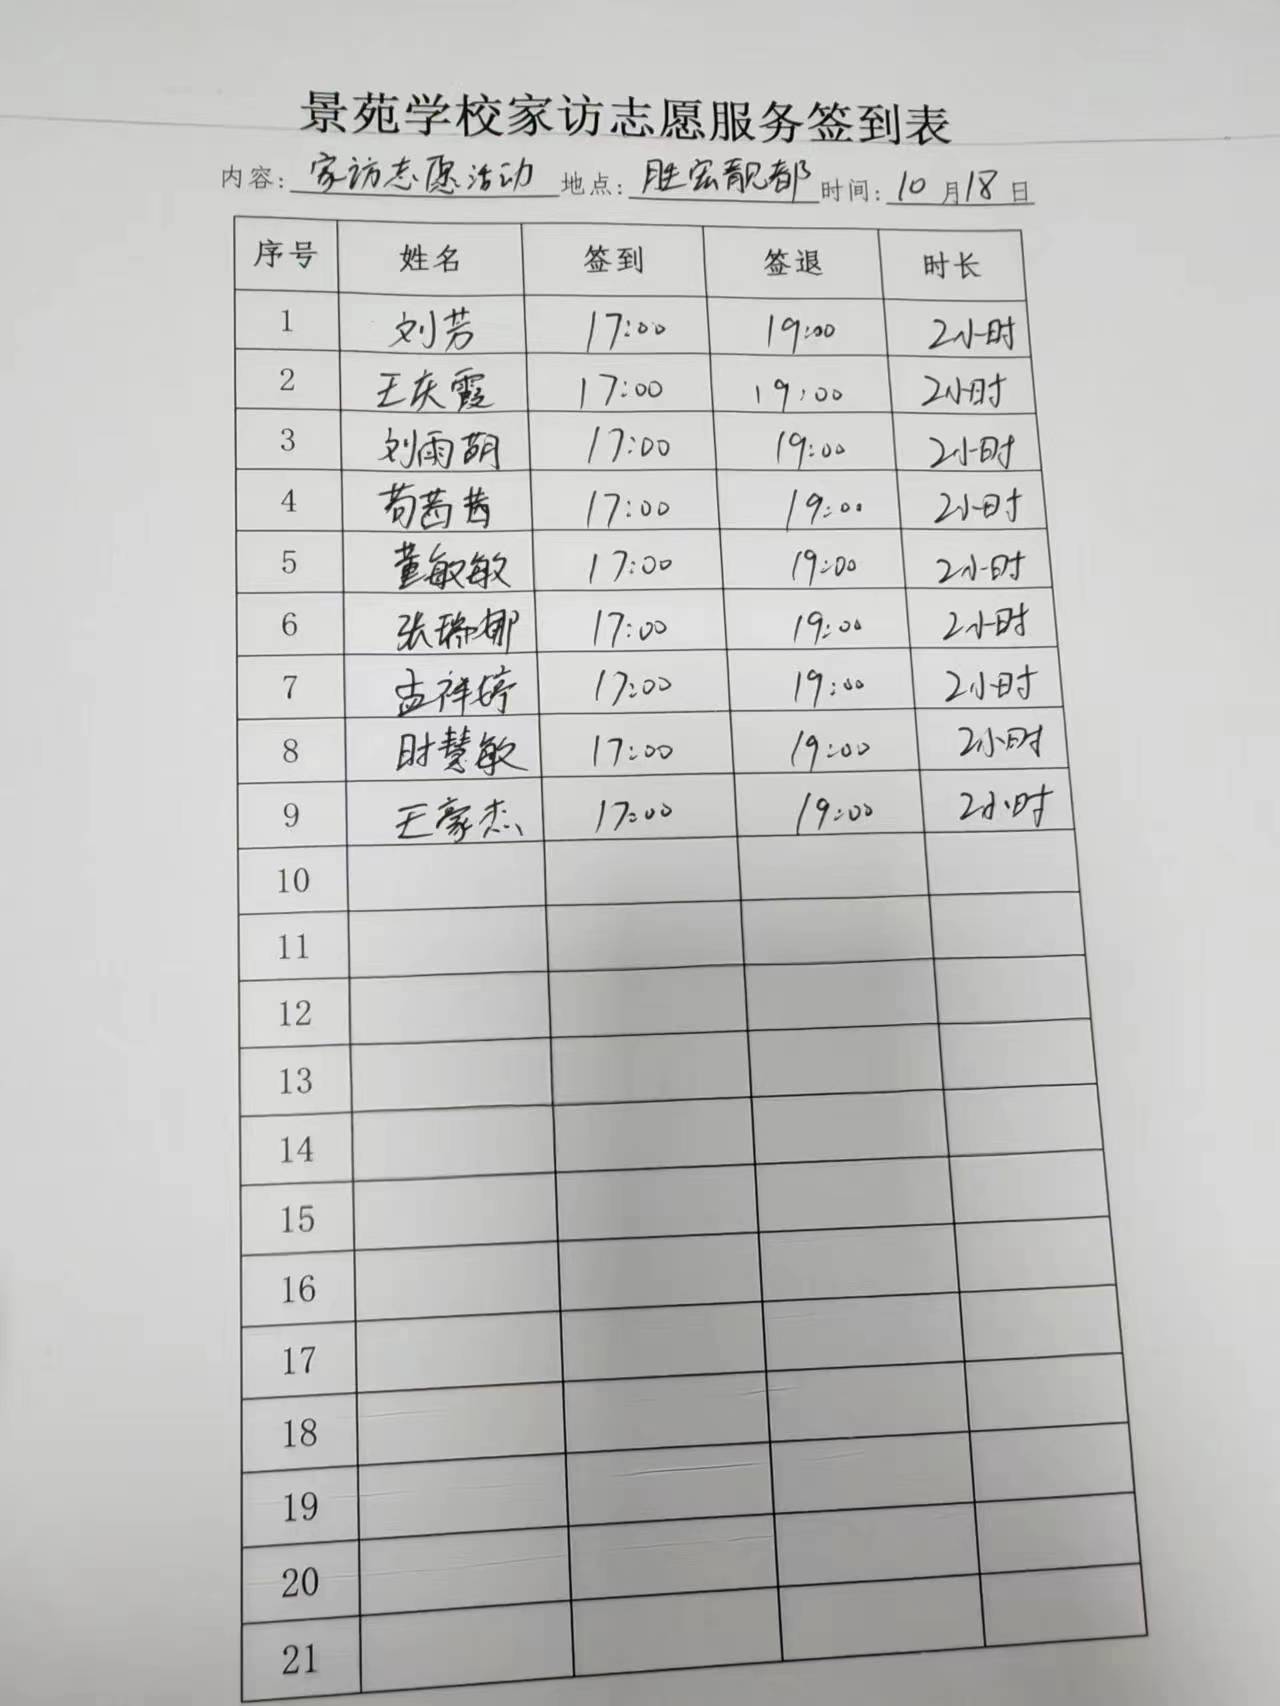 景苑学校家访志愿服务签到表
内容: 家访志愿活动 地点: 胜宏靓都 时间: 10 月 18 日
序号 姓名 签到 签退 时长
1 刘芳 17:00 19:00 2小时
2 王庆霞 17:00 19:00 2小时
3 刘雨萌 17:00 19:00 2小时
4 苟茜茜 17:00 19:00 2小时
5 董敏敏 17:00 19:00 2小时
6 张瑞娜 17:00 19:00 2小时
7 孟祥婷 17:00 19:00 2小时
8 时慧敏 17:00 19:00 2小时
9 王豪杰 17:00 19:00 2小时
10
11
12
13
14
15
16
17
18
19
20
21